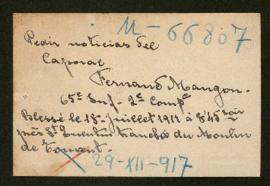 M-66807
Pedir noticias del
Caporal
Fernand Mangon.
65e Inf- 2e Compie
Blessé le 15-Juillet 1911 à 8h45 soir
près St Quentin tranchée du Moulin
de
29-XII-917